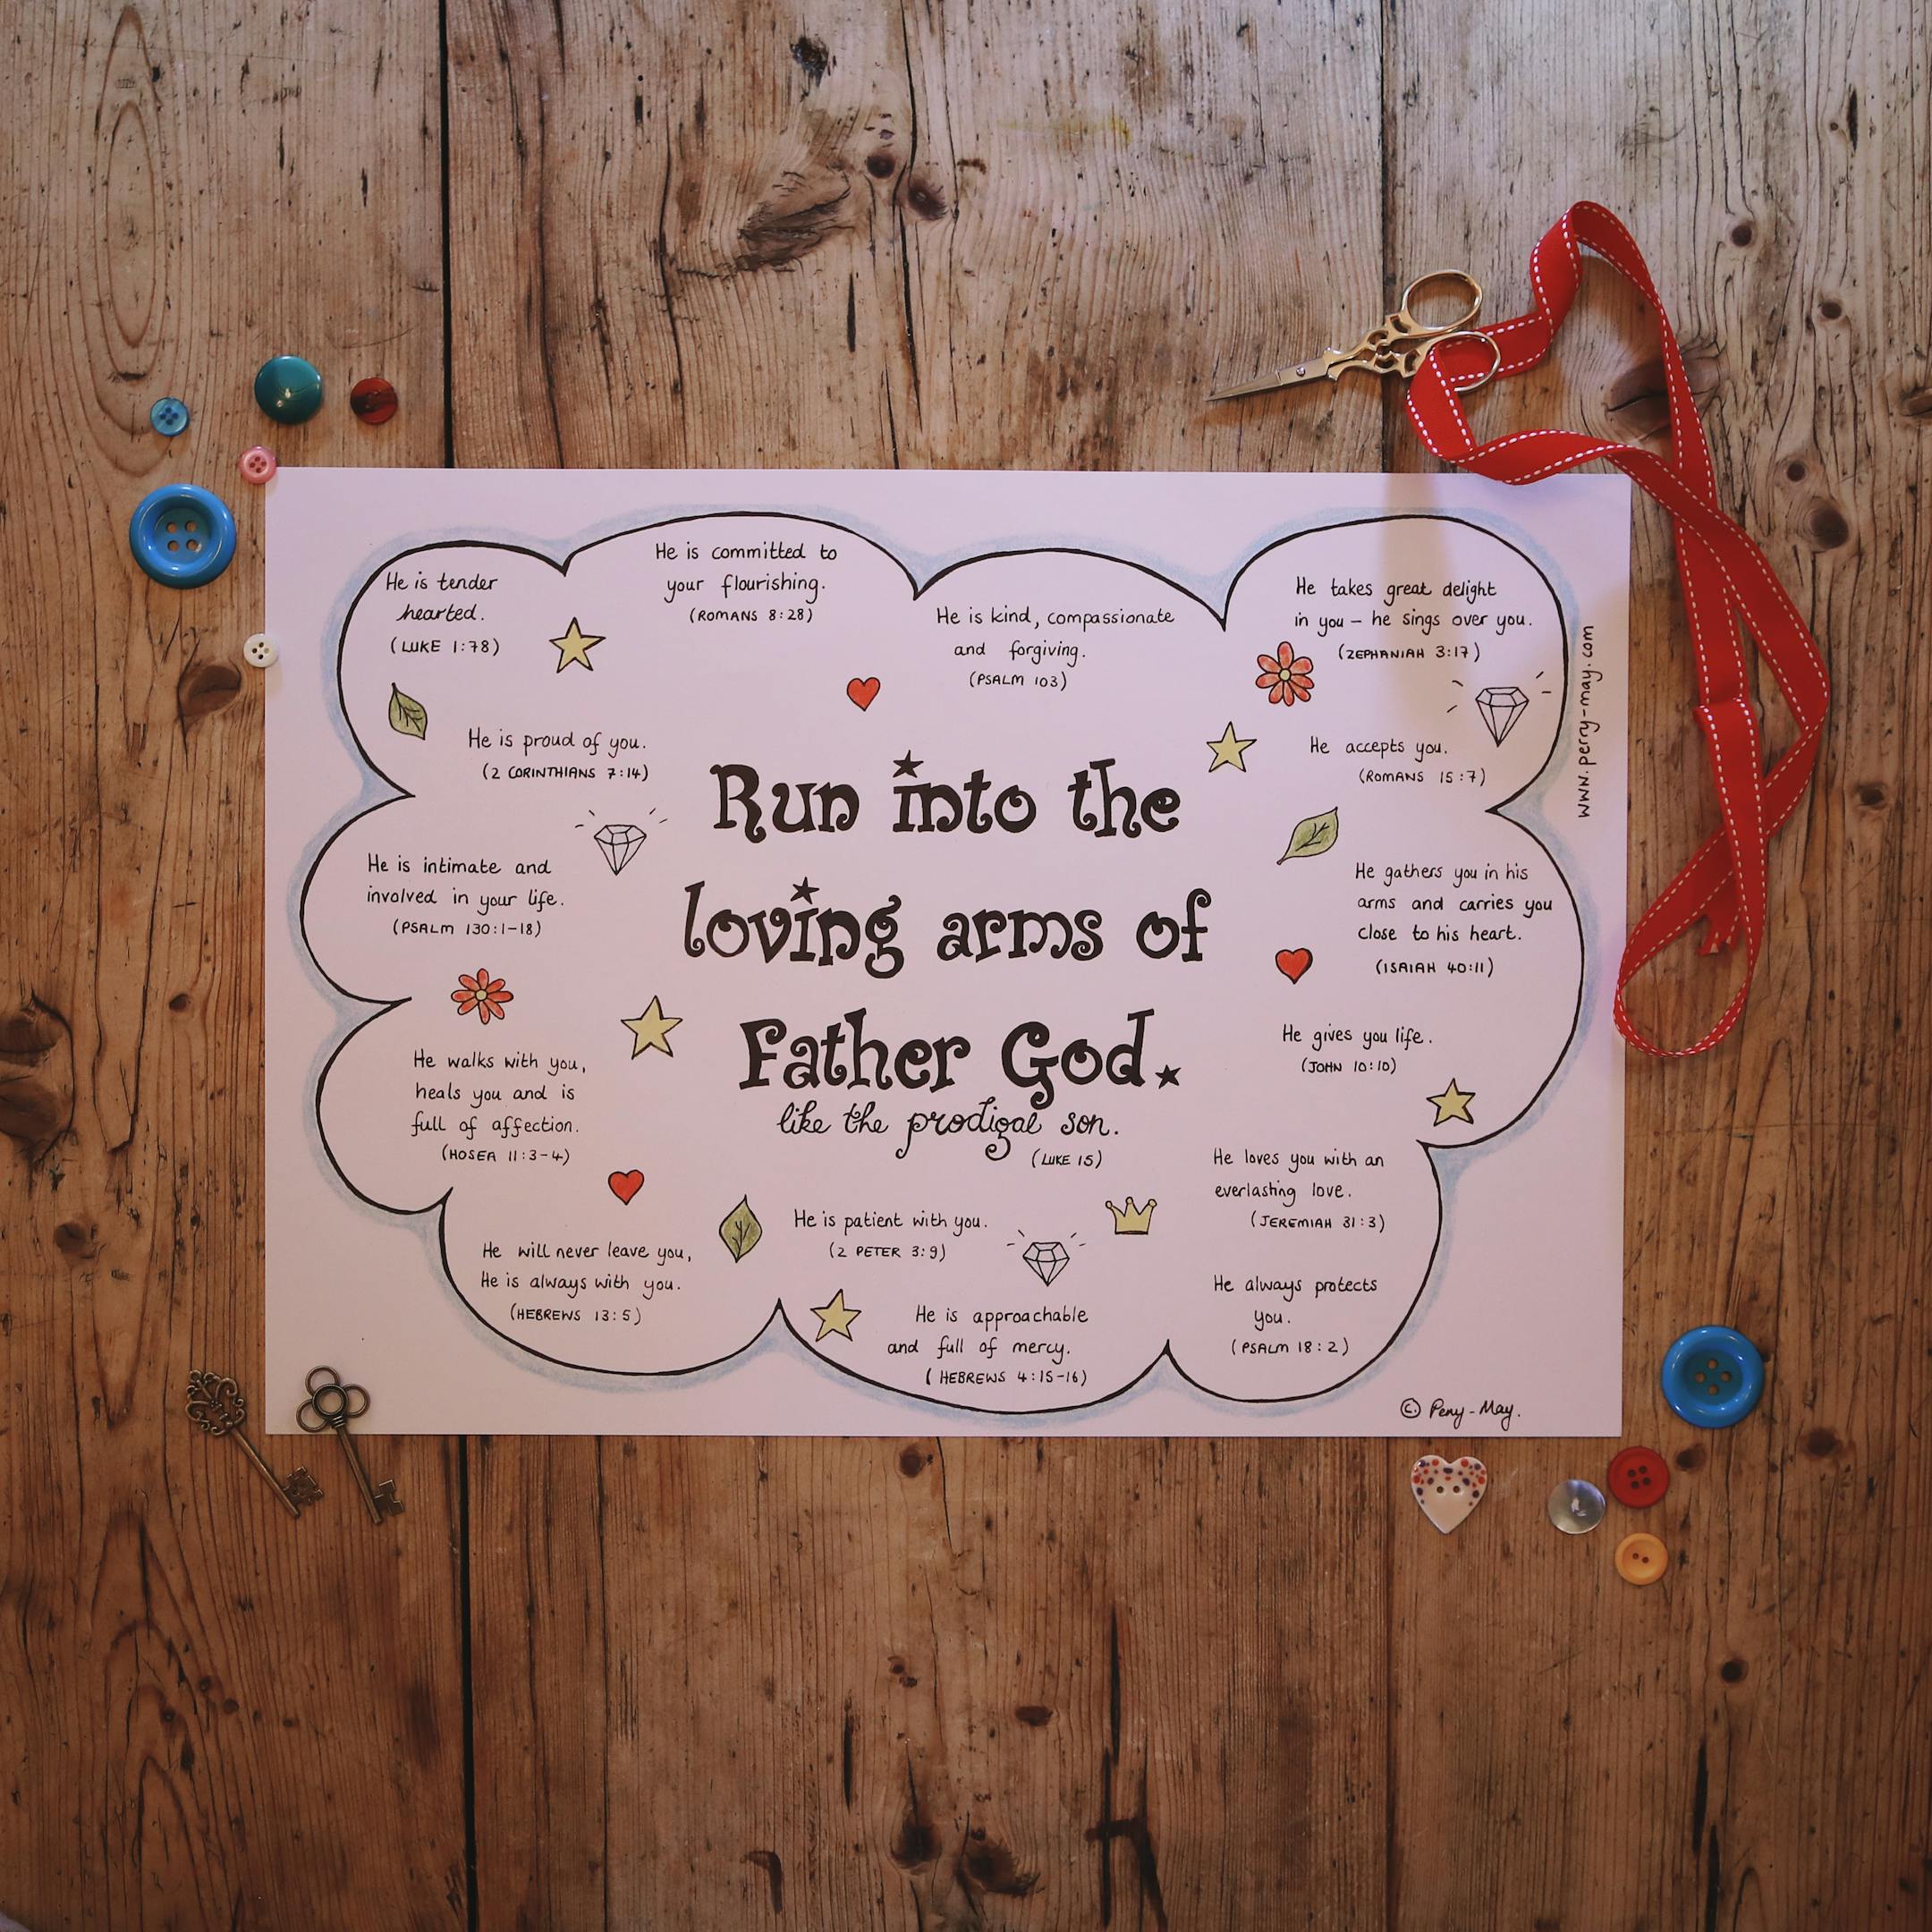 He is tender
hearted.
(LUKE 1:78)
He is committed to
your flourishing.
(ROMANS 8:28)
He is kind, compassionate
and forgiving.
(PSALM 103)
He takes great delight
in you – he sings over you.
(ZEPHANIAH 3:17)
He is proud of you.
(2 CORINTHIANS 7:14)
He accepts you.
(ROMANS 15:7)
He is intimate and
involved in your life.
(PSALM 130:1-18)
Run into the
loving arms of
Father God.
like the prodigal son.
(LUKE 15)
He gathers you in his
arms and carries you
close to his heart.
(ISAIAH 40:11)
He gives you life.
(JOHN 10:10)
He walks with you,
heals you and is
full of affection.
(HOSEA 11:3-4)
He loves you with an
everlasting love.
(JEREMIAH 31:3)
He will never leave you,
He is always with you.
(HEBREWS 13:5)
He is patient with you.
(2 PETER 3:9)
He is approachable
and full of mercy.
(HEBREWS 4:15-16)
He always protects
you.
(PSALM 18:2)
© Perry-May.
www.perry-may.com